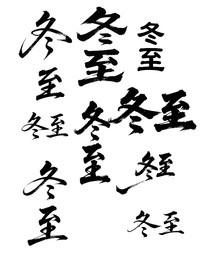 冬至
冬至
冬至
冬至
冬至
冬至
冬至
冬至
冬至